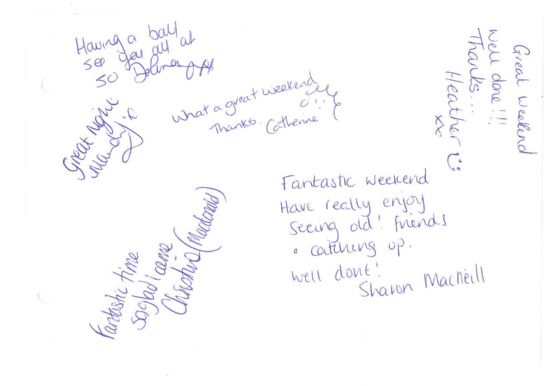 Having a ball
see you all at
50
Great night
Mandy x
What a great weekend
Thanks. Catherine
Great Weekend
Well done!!!
Thanks...
Heather
xx
Fantastic weekend
Have really enjoy
seeing old! friends
& catching up.
Well done!
Sharon MacNeill
Fantastic time
so glad i came
Christina (Macdonald)